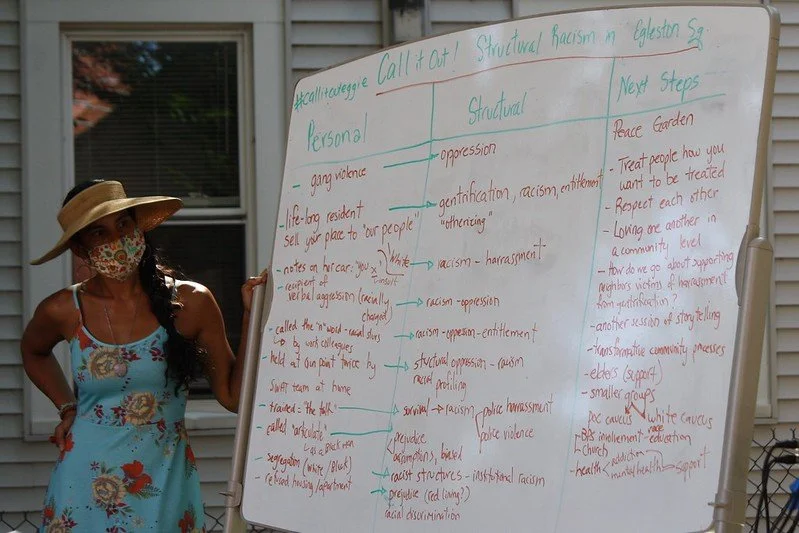 #callitouteggie Call it Out! Structural Racism in Egleston Sq.
Personal
- gang violence
- life-long resident
sell your place to "our people"
white
- notes on her car: "you x
insult
- recipient of
verbal aggression (racially
charged)
- called the "n" word - racial slurs
↳ by work colleagues
- held at gun point twice by
SWAT team at home
- trained - "the talk"
- called "articulate"
↳ as Black men
- segregation (white/Black)
- refused housing/apartment
Structural
oppression
gentrification, racism, entitlement
"otherizing"
racism - harrassment
racism - oppression
racism - oppesion - entitlement
structural oppression - racism
racial profiling
survival → racism
police harassment
police violence
prejudice
(assumption), biased
racist structures - institutional racism
prejudice (red lining?)
racial discrimination
Next Steps
Peace Garden
- Treat people how you
want to be treated
- Respect each other
- Loving one another in
a community level
- How do we go about supporting
neighbors victims of harassment
from gentrification?
- another session of storytelling
- transformative community processes
- elders (support)
- smaller groups
POC caucus white caucus
race
BPS involvement - education
church
- health
addiction
mental health → support